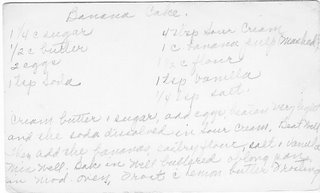 Banana Cake.
1 1/4 c sugar 4 tbsp Sour Cream
1/2 c butter 1 c banana pulp (mashed)
2 eggs 1 1/2 c flour
1 tsp soda 1 tsp vanilla
1/4 tsp salt.
Cream butter & sugar, add eggs beaten very light
and the soda dissolved in sour cream. Beat well
then add the bananas, flour, salt & vanilla
Mix Well. Bake in Well buttered oblong pan
in mod oven. Frost c lemon butter frosting